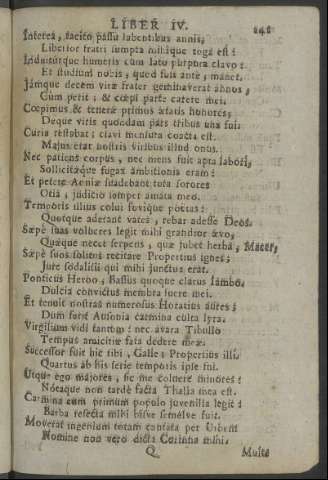 LIBER IV.
241
Interea, tacito passu labentibus annis,
Liberior fratri sumpta mihique toga est:
Induiturque humeris cum lato purpura clavo:
Et studium nobis, quod fuit ante, manet.
Jamque decem vitæ frater geminaverat annos,
Cum perit; & cœpi parte carere mei.
Cœpimus & teneræ primos ætatis honores,
Deque viris quondam pars tribus una fui.
Curia restabat; clavi mensura coacta est.
Majus erat nostris viribus illud onus.
Nec patiens corpus, nec mens fuit apta labori,
Sollicitæque fugax ambitionis eram:
Et petere Aoniæ suadebant tuta sorores
Otia, judicio semper amata meo.
Temporis illius colui fovique poëtas:
Quotque aderant vates, rebar adesse Deos.
Sæpe suas volucres legit mihi grandior ævo,
Quæque necet serpens, quæ jubet herba, Macer,
Sæpe suos solitus recitare Propertius ignes;
Jure sodalitii qui mihi junctus erat.
Ponticus Heroo, Bassus quoque clarus Iambo,
Dulcia convictus membra fuere mei.
Et tenuit nostras numerosus Horatius aures;
Dum ferit Ausonia carmina culta lyra.
Virgilium vidi tantum: nec avara Tibullo
Tempus amicitiæ fata dedere meæ.
Successor fuit hic tibi, Galle; Propertius illi.
Quartus ab his serie temporis ipse fui.
Utque ego majores, sic me coluere minores:
Notaque non tardè facta Thalia mea est.
Carmina cum primum populo juvenilia legi:
Barba resecta mihi bisve semelve fuit.
Moverat ingenium totam cantata per Urbem
Nomine non vero dicta Corinna mihi.
Q
Multa